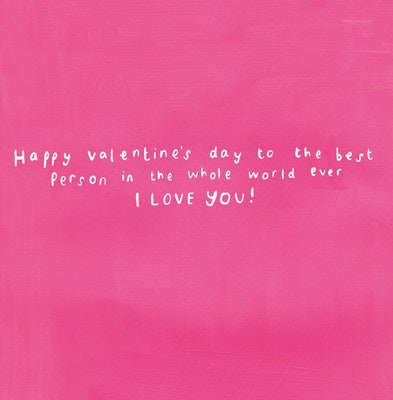 Happy valentine's day to the best
Person in the whole world ever
I LOVE YOU!